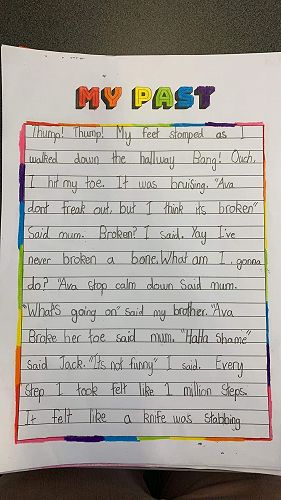 MY PAST
Thump! Thump! My feet stomped as I
walked down the hallway Bang! Ouch,
I hit my toe. It was bruising. "Ava
dont freak out, but I think its broken"
Said mum. Broken? I said. Yay I've
never broken a bone, What am I gonna
do? "Ava stop calm down Said mum.
"What's going on" said my brother. "Ava
Broke her toe said mum. "HaHa shame"
said Jack. "It's not funny" I said. Every
step I took felt like 1 million steps.
It felt like a knife was stabbing